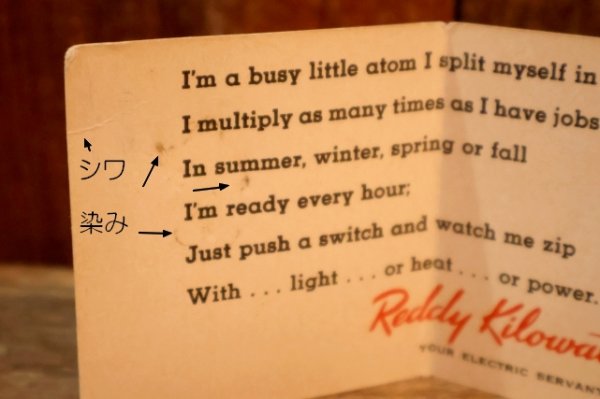 I'm a busy little atom I split myself in
I multiply as many times as I have jobs
In summer, winter, spring or fall
I'm ready every hour;
Just push a switch and watch me zip
With . . . light . . . or heat . . . or power.
Reddy Kilowa
YOUR ELECTRIC SERVAN
シワ
染み